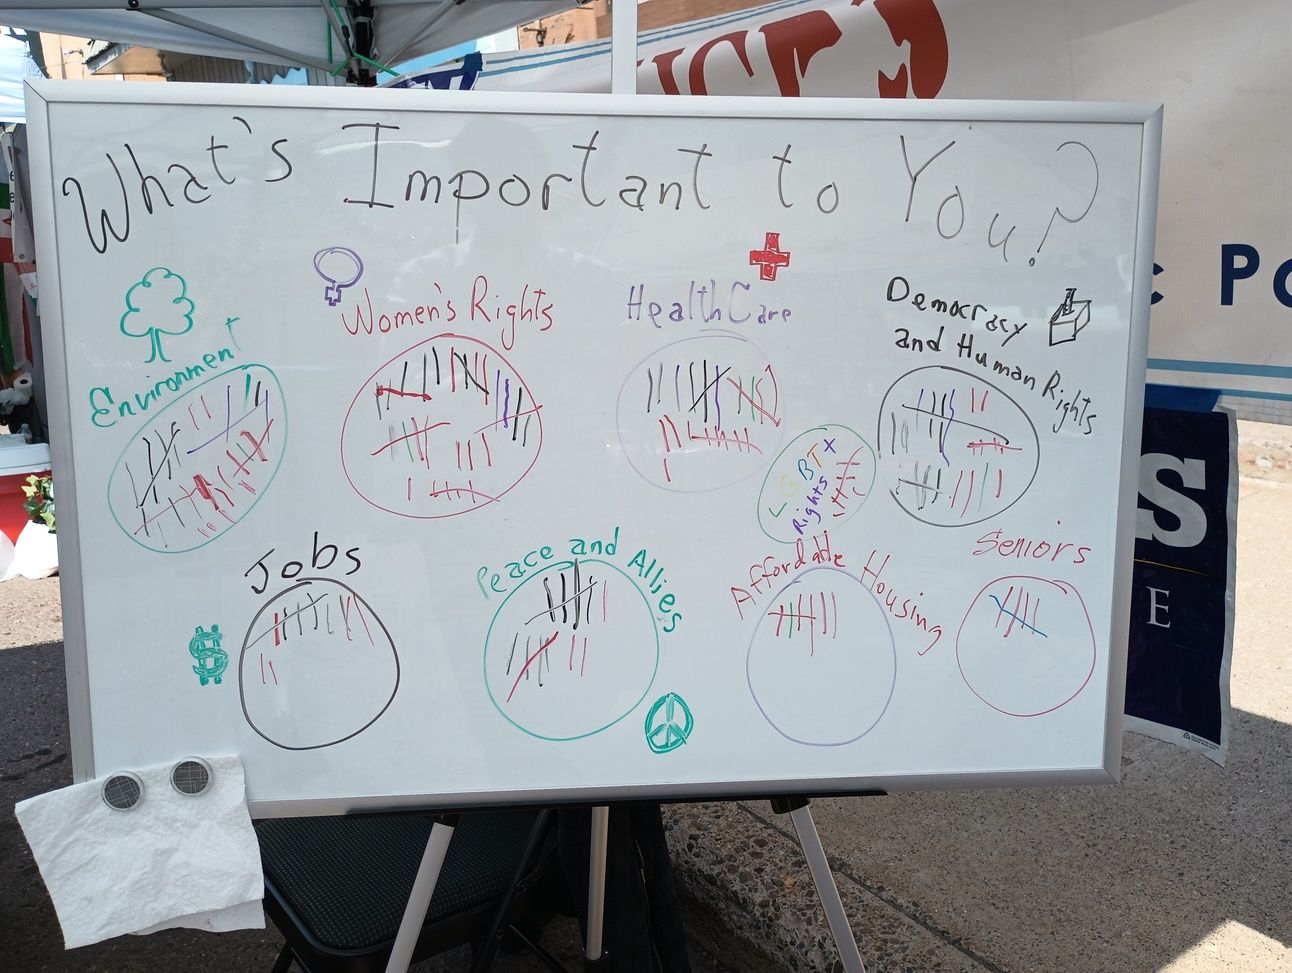 What's Important to You?
Environment
Women's Rights
Health Care
Democracy
and Human Rights
LGBTX
Rights
Jobs
Peace and Allies
Affordable Housing
Seniors
$
Po
S
E